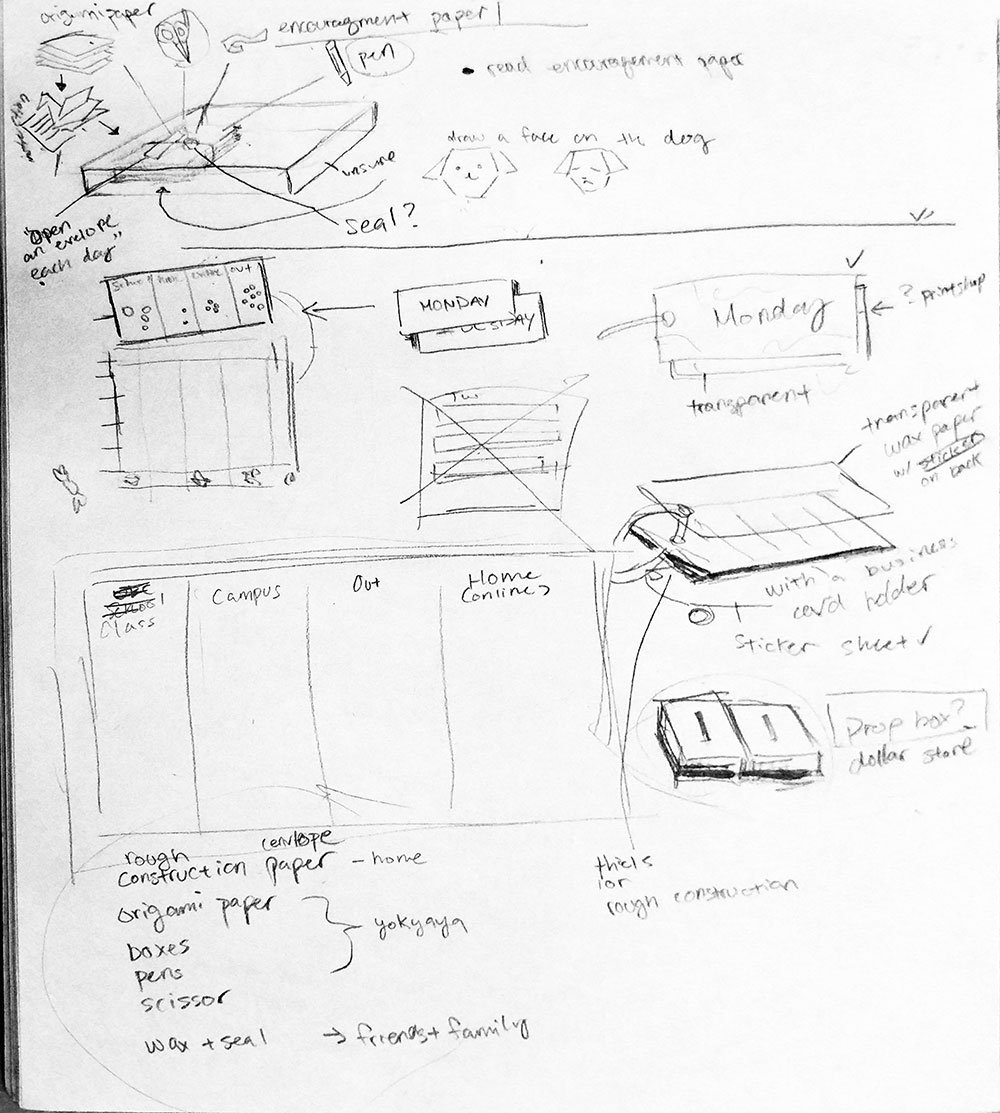 origami paper
encouragment paper
pen
• read encouragement paper
draw a face on the dog
"Open
an envelope
each day"
seal?
out
MONDAY
Monday
? printshop
transparent
transparent
wax paper
w/ sticker
on back
with a business
card holder
sticker sheet ✓
Class
Campus
Out
Home
(online)
Drop box?
dollar store
envlope
rough
construction paper – home
origami paper
boxes
pens
yokyaya
scissor
wax + seal → friends + family
rough construction